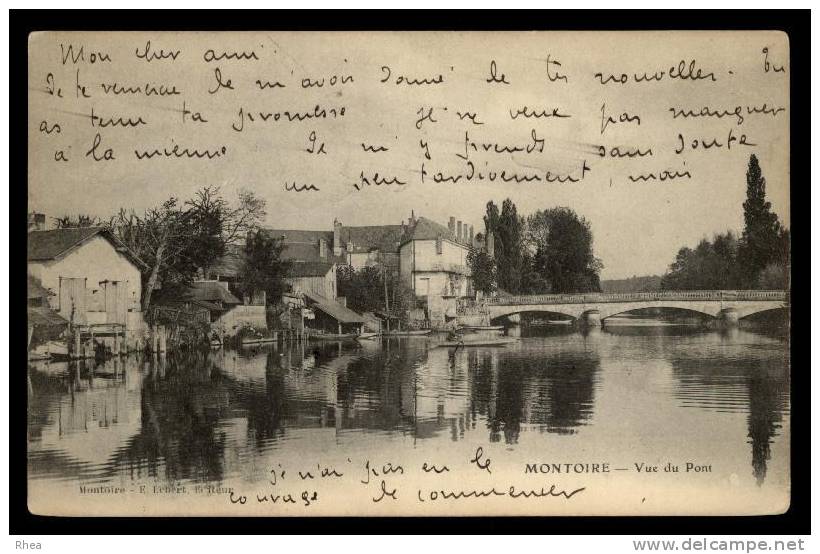 Mon cher ami
Je te remercie de m'avoir donné de tes nouvelles. Tu
as tenu ta promesse je ne veux pas manquer
à la mienne Je m'y prends sans doute
un peu tardivement, mais
je n'ai pas eu le
courage de commencer
MONTOIRE — Vue du Pont
Montoire - E. Lebert, Editeur
Rhea
http://www.delcampe.net